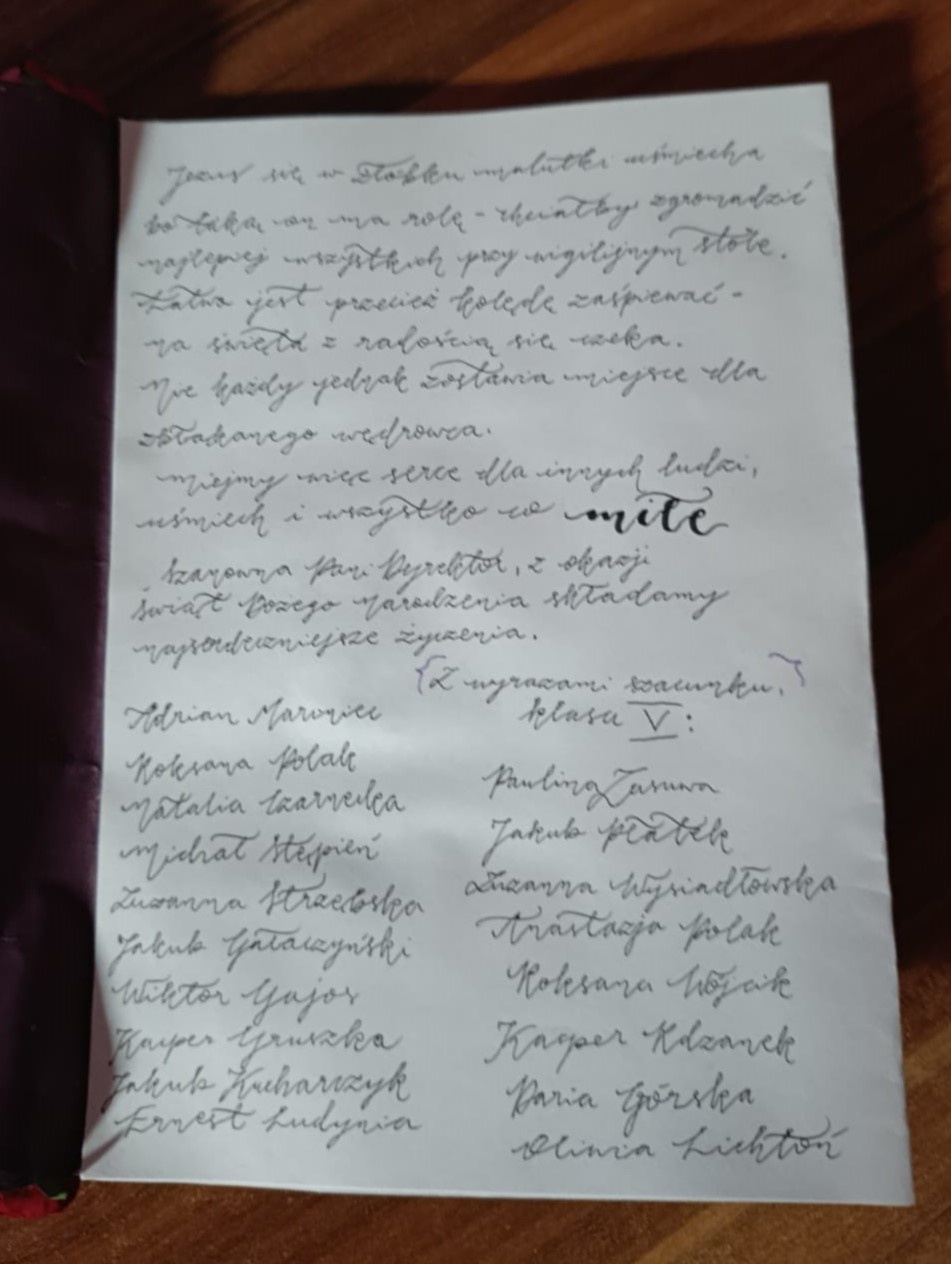 Jezus się w żłobku malutki uśmiecha
bo taką on ma rolę - chciałby zgromadzić
najlepiej wszystkich przy wigilijnym stole.
Łatwo jest przecież kolędę zaśpiewać -
na święta z radością się czeka.
Nie każdy jednak zostawia miejsce dla
zbłąkanego wędrowca.
Miejmy więc serce dla innych ludzi,
uśmiech i wszystko co miłe
Szanowna Pani Dyrektor, z okazji
Świąt Bożego Narodzenia składamy
najserdeczniejsze życzenia.
{Z wyrazami szacunku,}
klasa V:
Adrian Marzniec
Roksana Polak
Natalia Czarnecka
Michał Stępień
Zuzanna Strzębska
Jakub Gałaczyński
Wiktor Gajos
Kacper Gruszka
Jakub Kucharczyk
Ernest Ludynia
Paulina Zasuwa
Jakub Płatek
Zuzanna Wysiadłowska
Anastazja Polak
Roksana Wójcik
Kacper Kdzanek
Daria Górska
Oliwia Lichtoń